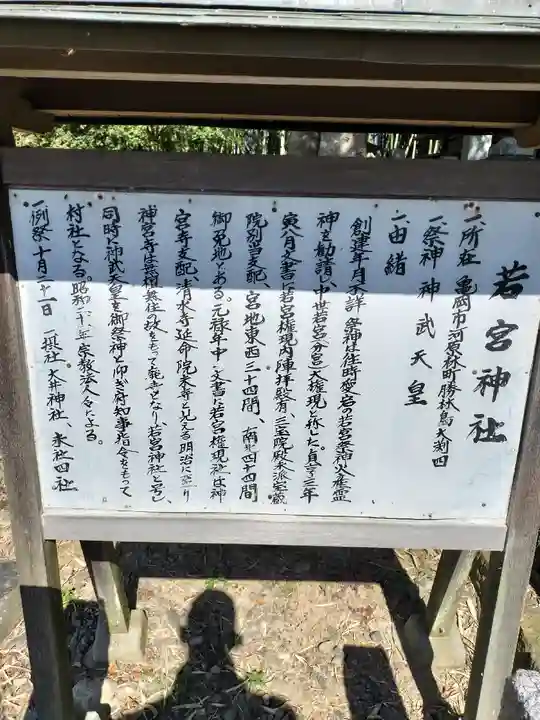 若宮神社
一、所在 亀岡市河原林町勝林島大刻四
一、祭神 神武天皇
一、由緒
創建年月不詳 祭神は往時愛宕の若宮祭神火産霊
神を勧請、中世若宮(分宮)大権現と称した。貞享三年
寅八月文書に若宮権現内陣拝殿有、三宝院殿本派宝蔵
院別当支配、宮地東西三十四間、南北四十四間
御免地とある。元禄年中文書に若宮権現社は神
宮寺支配、清水寺延命院末寺と見える明治に至り
神宮寺は無檀無住の故をもって廃寺となり若宮神社と号し
同時に神武天皇を御祭神と仰ぎ府知事指令をもって
村社となる。昭和二十一年宗教法人令による。
一、例祭十月二十一日 一、摂社 大井神社、末社四社